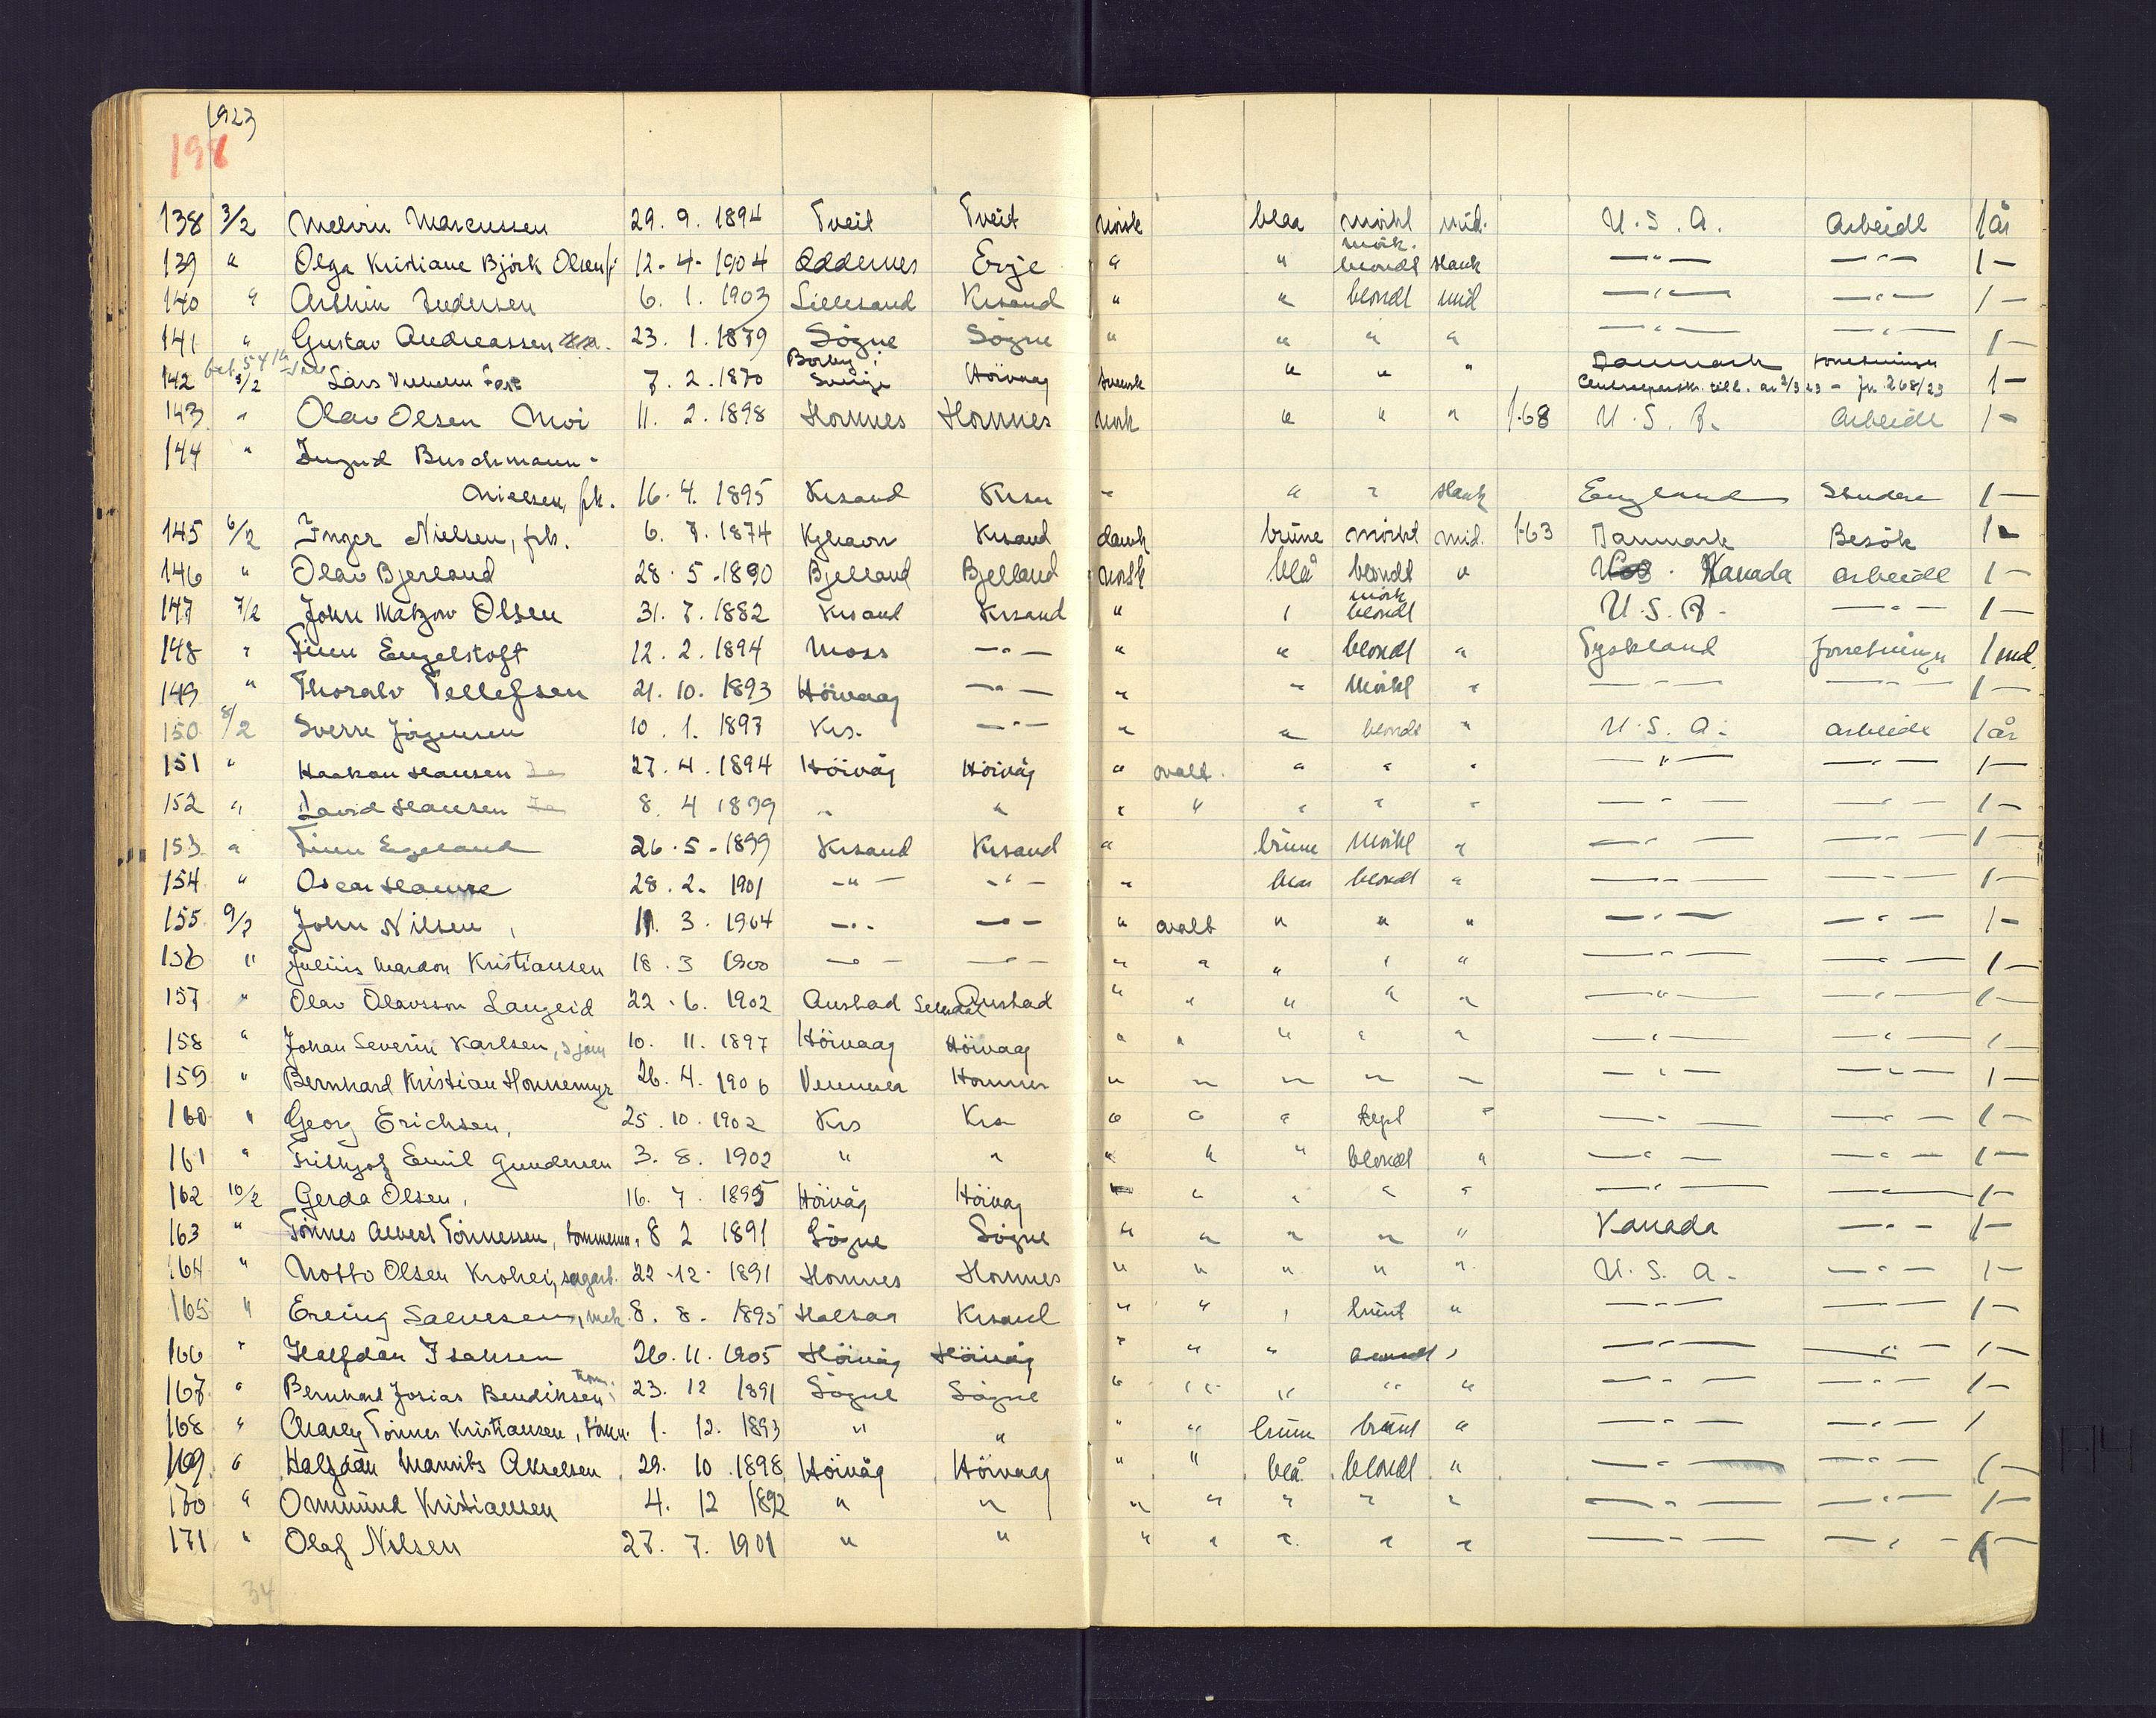 1923
198
138 3/2 Melvin Marcussen 29. 9. 1894 Tveit Tveit norsk blaa mörkt mid. U.S.A. Arbeide 1 år
139 " Olga Kristiane Björk Olsen 12-4-1904 Oddernes Evje " " mörk. blondt slank —"— —"— 1 —
140 " Arthur 6. 1. 1903 Lillesand Krsand " " blondt mid —"— —"— 1 —
141 " Gustav Andreassen 23. 1. 1879 Sögne Sögne " " " " —"— —"— 1 —
142 5/2 Lars Vilhelm 7. 2. 1870 Sverige Höivaag svensk " " " Danmark forretninger 1 —
av 2/3 23 - Jn. 268/23
143 " Olav Olsen Moi 11. 2. 1898 Hornnes Hornnes norsk " " " 1.68 U.S.A. Arbeide 1 —
144 " Ingrid Buschmann-
Nielsen, frk. 16. 4. 1895 Krsand Krsn " " " slank England Studere 1 —
145 6/2 Inger Nielsen, frk. 6. 7. 1874 Kjbhavn Krsand dansk brune mörkt mid. 1.63 Danmark Besök 1 —
146 " Olav Bjerland 28. 5. 1890 Bjelland Bjelland norsk blå blondt " Kanada arbeide 1 —
147 7/2 John Matzow Olsen 31. 7. 1882 Krsand Krsand " " mörk blondt U.S.A. —"— 1 —
148 " Finn Engelstoft 12. 2. 1894 Moss —"— " " blondt " Tyskland forretninger 1 md.
149 " Thoralv Tellefsen 21. 10. 1893 Höivaag —"— " " mörkt " —"— —"— 1 —
150 8/2 Sverre Jörgensen 10. 1. 1897 Krs. —"— " " blondt " U.S.A. arbeide 1 år
151 " Haakon Hansen 27. 4. 1894 Höivåg Höivåg " ovalt. " " " —"— —"— 1 —
152 " David Hansen 8. 4 1899 " " " " " " " —"— —"— 1 —
153 " Finn Egeland 26. 5. 1899 Krsand Krsand " brune mörkt " —"— —"— 1 —
154 " Oscar 28. 2. 1901 —"— —"— " blaa blondt " —"— —"— 1 —
155 9/2 John Nilsen, 11. 3. 1904 —"— —"— " ovalt " " " —"— —"— 1 —
156 " Julius Mardon Kristiansen 18. 3 1900 —"— —"— " " " " " —"— —"— 1 —
157 " Olav Olavsson Langeid 22. 6. 1902 Austad Austad " " " " " —"— —"— 1 —
158 " Johan Severin Karlsen, sjöm 10. 11. 1897 Höivaag Höivaag " " " " " —"— —"— 1 —
159 " Bernhard Kristian Honnemyr 26. 4. 1906 Vennesla Hornnes " " " " " —"— —"— 1 —
160 " Georg Erichsen, 25. 10. 1902 Krs Krs " " " " —"— —"— 1 —
161 " Frithjof Emil Gundersen 3. 8. 1902 " " " " " blondt " —"— —"— 1 —
162 10/2 Gerda Olsen, 16. 7. 1895 Höivåg Höivåg " " " " " —"— —"— 1 —
163 " Tönnes Albert Tönnessen, tömmerm. 8 2 1891 Sögne Sögne " " " " " Kanada —"— 1 —
164 " Notto Olsen Krohei, sagarb. 22-12-1891 Hornnes Hornnes " " " " " U.S.A. —"— 1 —
165 " Erling Salvesen, mek. 8. 8. 1895 Halsaa Krsand " " " brunt " —"— —"— 1 —
166 " Halfdan Isaksen 26. 11. 1905 Höivåg Höivåg " " " blondt " —"— —"— 1 —
167 " Bernhard Josias Bendiksen, töm. 23. 12 1891 Sögne Sögne " " " " " —"— —"— 1 —
168 " Charly Tönnes Kristiansen, tömm. 1. 12. 1893 " " " " brune brunt " —"— —"— 1
169 " Halfdan Maurits Akselsen 29. 10. 1898 Höivåg Höivaag " " blå blondt " —"— —"— 1 —
170 " Ommund Kristiansen 4. 12 1892 " " " " " " " —"— —"— 1 —
171 " Olaf Nilsen 27. 7. 1901 " " " " " " " —"— —"— 1 —
34